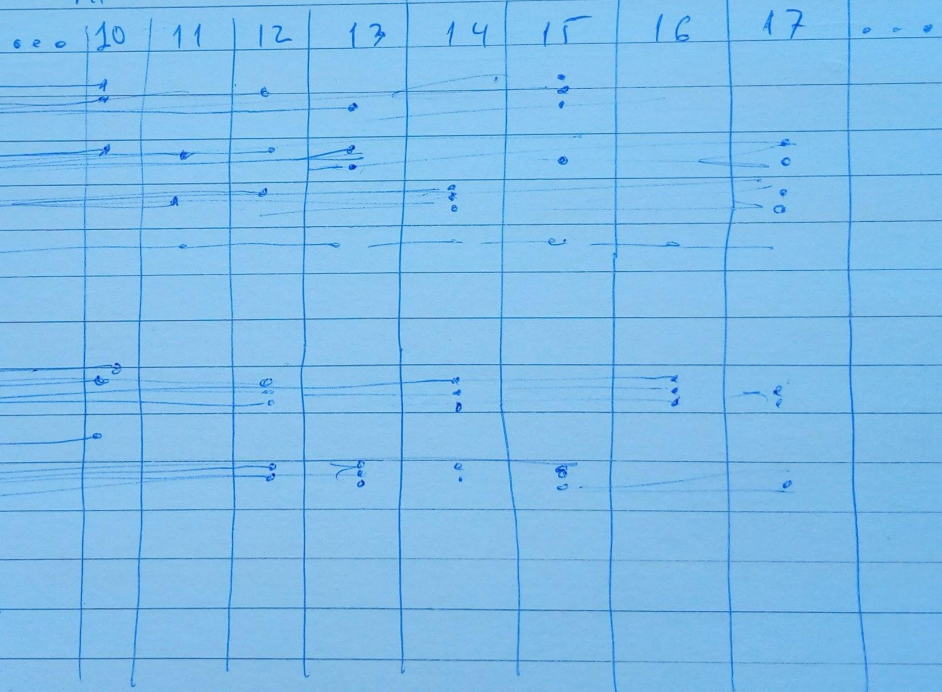 ... 10 11 12 13 14 15 16 17 ...